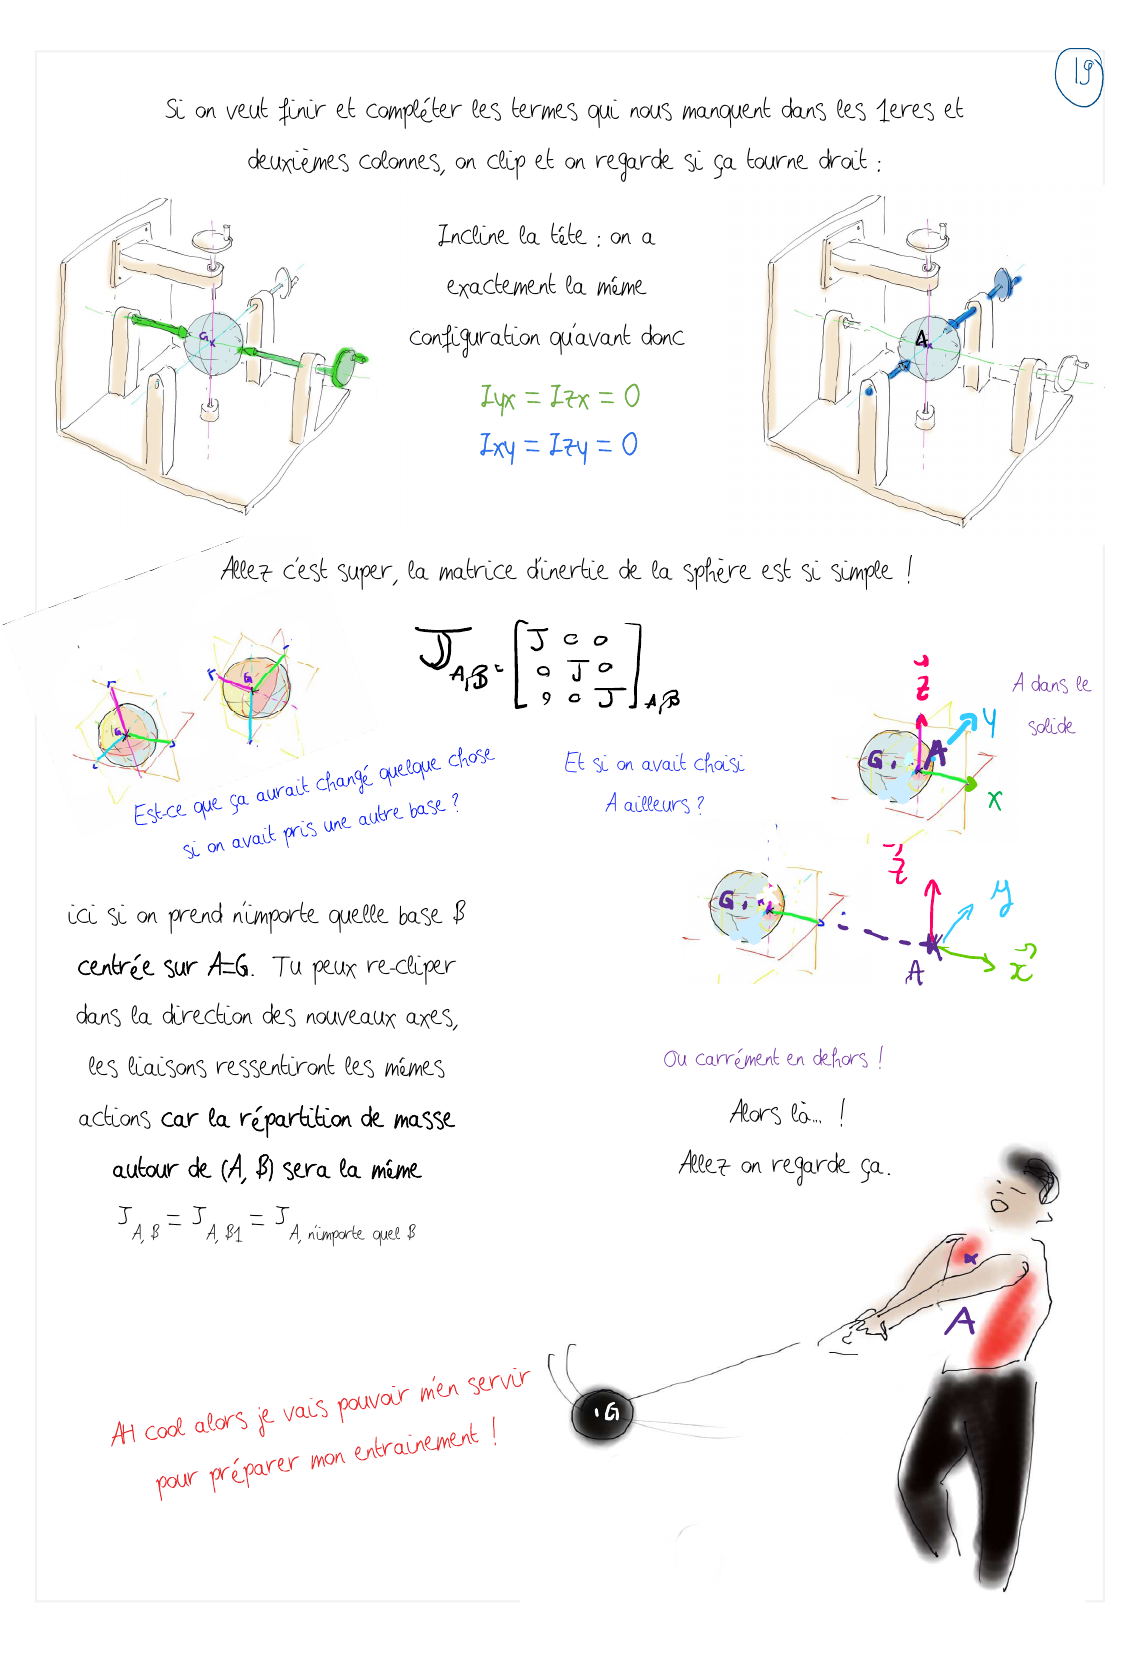 19
Si on veut finir et compléter les termes qui nous manquent dans les 1eres et
deuxièmes colonnes, on clip et on regarde si ça tourne droit :
Incline la tête : on a
exactement la même
configuration qu'avant donc
Iyx = Izx = 0
Ixy = Izy = 0
G
A
Allez c'est super, la matrice d'inertie de la sphère est si simple !
J A,B = [J 0 0
0 J 0
0 0 J] A,B
G
G
Est-ce que ça aurait changé quelque chose
si on avait pris une autre base ?
Et si on avait choisi
A ailleurs ?
A dans le
solide
z
y
G A
x
z
y
G
A
x
ici si on prend n'importe quelle base B
centrée sur A=G. Tu peux re-cliper
dans la direction des nouveaux axes,
les liaisons ressentiront les mêmes
actions car la répartition de masse
autour de (A, B) sera la même
J A, B = J A, B1 = J A, n'importe quel B
Ou carrément en dehors !
Alors là... !
Allez on regarde ça.
A
G
AH cool alors je vais pouvoir m'en servir
pour préparer mon entrainement !